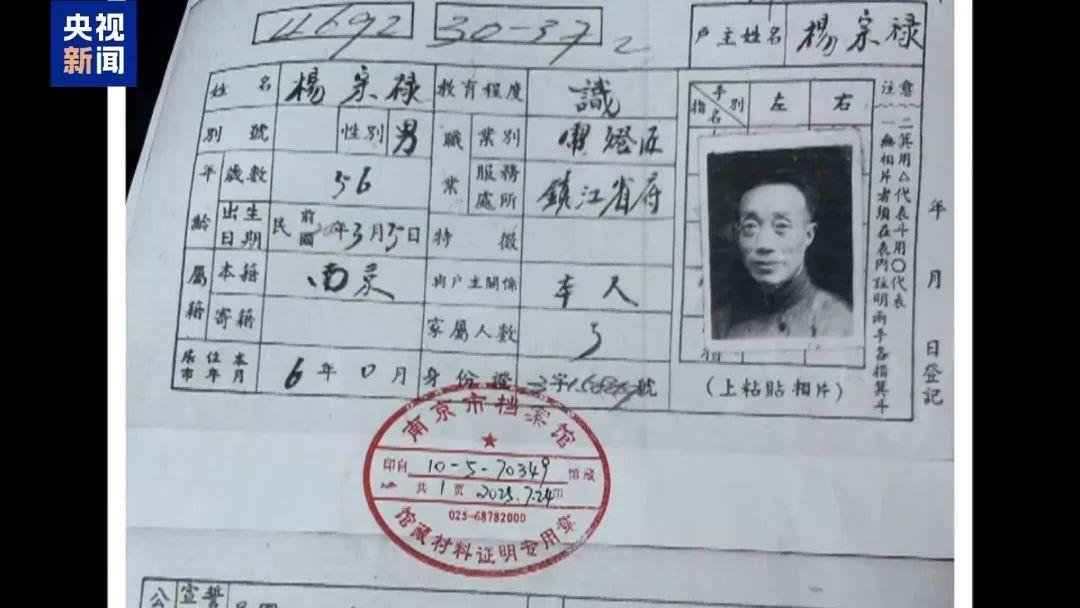 央视
新闻
11692 30-37 2
户主姓名 楊宗禄
姓名 楊宗禄 教育程度 識
別號 性別 男 職業 業別 燈匠
年齡 歲數 56 服務處所 鎮江省府
出生日期 民前國 年3月 日 特徵
屬籍 本籍 南京 與戶主關係 本人
寄籍 家屬人數 5
居住本市年月 6年0月 身份證 字 號
指名 手別 左 右
注意
一無相片者須在表內註明兩手各指箕斗
二箕用△代表斗用〇代表
年 月 日登記
(上粘貼相片)
南京市档案馆
印自 10-5-70349 馆藏
共1页 2025.7.24印
025-68782000
馆藏材料证明专用章
公 宣誓